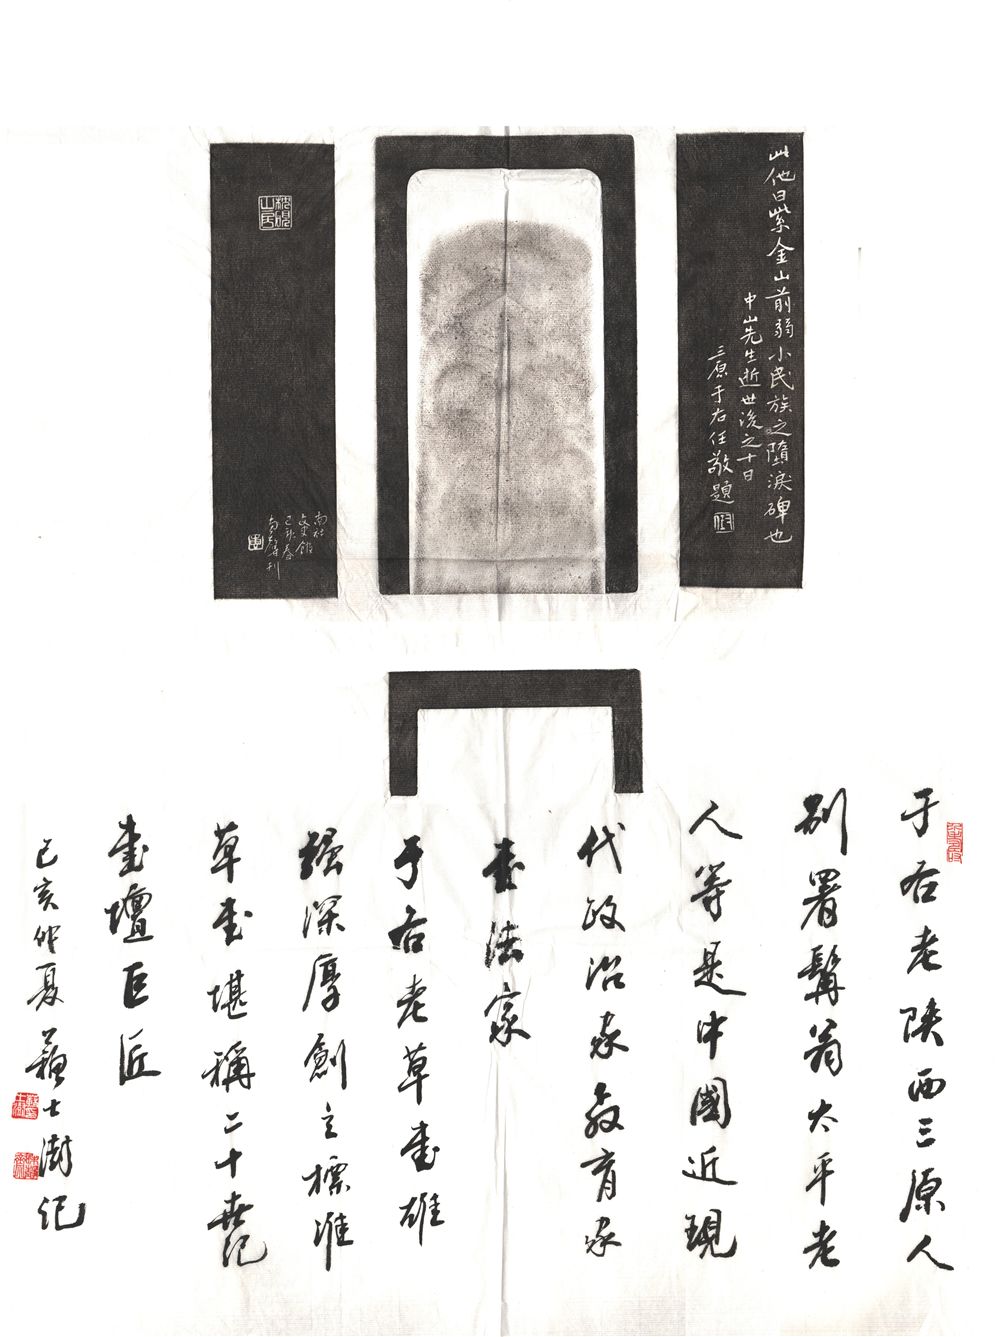 此他日紫金山前弱小民族之墮淚碑也
中山先生逝世後之十日
三原于右任敬題
山房
己卯春
于右老陝西三原人
別署髯翁太平老
人等是中國近現
代政治家教育家
書法家
于右老草書雄
強深厚創立標准
草書堪稱二十世紀
書壇巨匠
己亥仲夏蘇士澍記